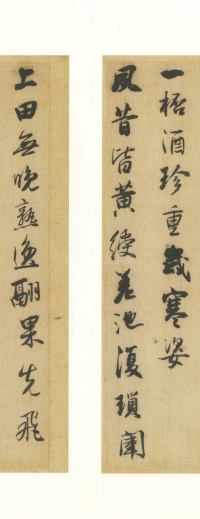 一桮酒珍重歲寒姿
夙昔皆黃綬差池復瑣闈
上田無晚熟逸翮果先飛